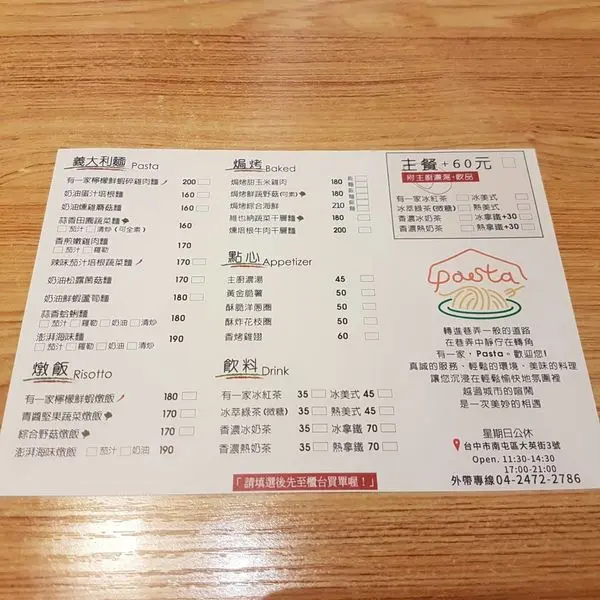 義大利麵 Pasta
有一家檸檬鮮蝦碎雞肉麵 200
奶油蛋汁培根麵 160
奶油燻雞蘑菇麵 160
蒜香田園蔬菜麵 160
茄汁 清炒(可全素)
香煎嫩雞肉麵 170
茄汁 羅勒
辣味茄汁培根蔬菜麵 160
奶油松露菌菇麵 170
奶油鮮蝦蘆筍麵 180
蒜香蛤蜊麵 180
茄汁 羅勒 奶油 清炒
澎湃海味麵 190
茄汁 羅勒 奶油 清炒
燉飯 Risotto
有一家檸檬鮮蝦燉飯 180
青醬堅果蔬菜燉飯 170
綜合野菇燉飯 170
澎湃海味燉飯 茄汁 奶油 190
焗烤 Baked
焗烤甜玉米雞肉 180
焗烤鮮蔬野菇(可素) 180
焗烤綜合海鮮 210
維也納蔬菜千層麵 180
燻培根牛肉千層麵 200
點心 Appetizer
主廚濃湯 45
黃金脆薯 50
酥脆洋蔥圈 50
酥炸花枝圈 50
香烤雞翅 60
飲料 Drink
有一家冰紅茶 35 冰美式 45
冰萃綠茶(微糖) 35 熱美式 45
香濃冰奶茶 35 冰拿鐵 70
香濃熱奶茶 35 熱拿鐵 70
「請填選後先至櫃台買單喔！」
主餐+60元
附主廚濃湯+飲品
有一家冰紅茶 冰美式
冰萃綠茶(微糖) 熱美式
香濃冰奶茶 冰拿鐵+30
香濃熱奶茶 熱拿鐵+30
pasta
轉進巷弄一般的道路
在巷弄中靜佇在轉角
有一家，Pasta。歡迎您!
真誠的服務、輕鬆的環境、美味的料理
讓您沉浸在輕鬆愉快地氛圍裡
越過城市的喧鬧
是一次美妙的相遇
星期日公休
台中市南屯區大英街3號
Open. 11:30-14:30
17:00-21:00
外帶專線04-2472-2786